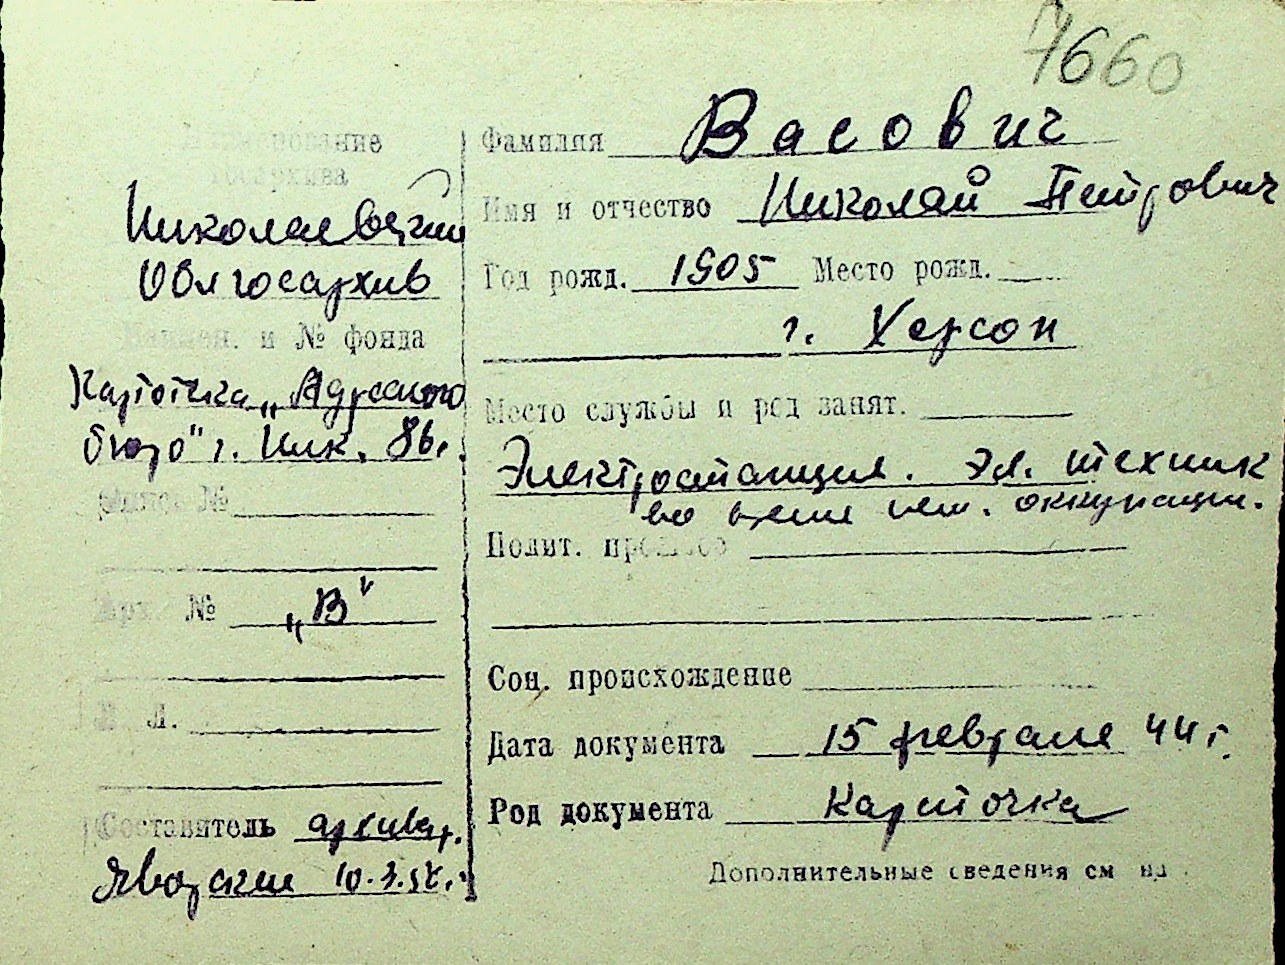 7660
Наименование
госархива
Николаевский
Облгосархив
Наимен. и № фонда
Картотека „Адресного
бюро" г. Ник.
Опись №
Арх. № „В"
Л.
Составитель архивар.
Яворская 10.3.
Фамилия Васович
Имя и отчество Николай Петрович
Год рожд. 1905 Место рожд.
г. Херсон
Место службы и род занят.
Электростанция. Эл. техник
во время нем. оккупации.
Полит. прошлое
Соц. происхождение
Дата документа 15 февраля 44 г.
Род документа Карточка
Дополнительные сведения см на